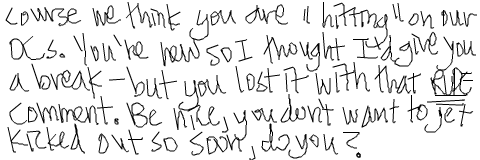 course we think you are "hitting" on our
OCs. You're new so I thought I'd give you
a break - but you lost it with that RUDE
comment. Be nice, you don't want to get
kicked out so soon, do you?